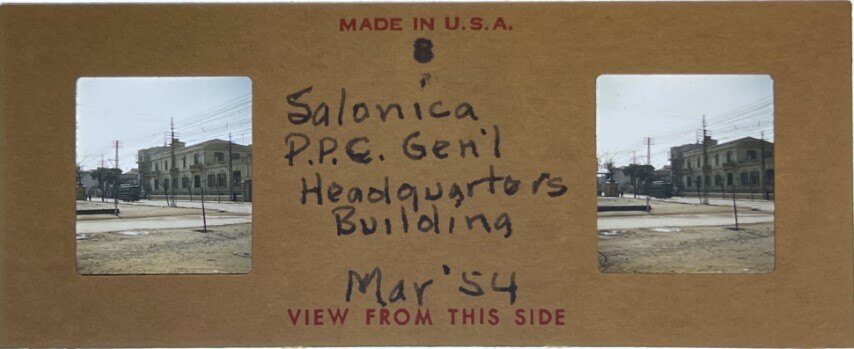 MADE IN U.S.A.
8
Salonica
P.P.C. Gen'l
Headquarters
Building
Mar '54
VIEW FROM THIS SIDE